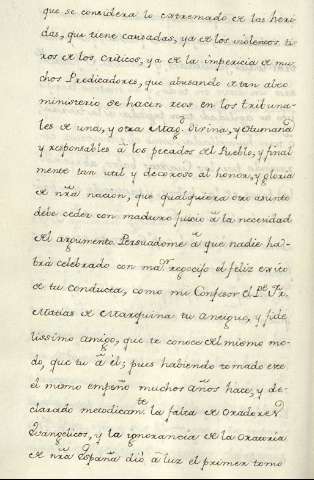 que se considera lo extremado de las heri-
das, que tiene causadas, ya de los violentos ti-
ros de los criticos, ya de la impericia de mu-
chos Predicadores, que abusando de tan alto
ministerio se hacen reos en los tribuna-
les de una, y otra Mag.d Divina, y Humana
y responsables â los pecados del Pueblo, y final
mente tan util y decoroso al honor, y gloria
de nr̃a nacion, que qualquiera otro asunto
debe ceder con maduro juicio â la necesidad
del argumento. Persuadome â que nadie ha-
brá celebrado con ma.r regocijo el feliz exito
de tu conducta, como mi Confesor el P.e Fr.
Matias de Marquina tu antiguo, y fide
lissimo amigo, que te conoce del mismo mo-
do, que tu â el; pues habiendo tomado este
el mismo empeño muchos años hace, y de-
clarado metodicam.te la falta de Oradores
Evangelicos, y la ignorancia de la Oratoria
de nr̃a España dió â luz el primer tomo